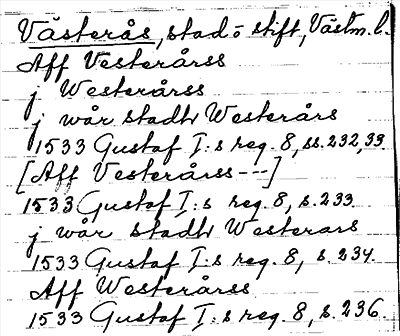 Västerås, stad o stift, Västm. l.
Aff Vesterårss
j Westerårss
j wår stadh Westerårs
1533 Gustaf I:s reg. 8, ss. 232, 33.
[Aff Vesterårss ---]
1533 Gustaf I:s reg. 8, s. 233
j wår stadh Westerars
1533 Gustaf I:s reg. 8, s. 234.
Aff Westerårss
1533 Gustaf I:s reg. 8, s. 236.